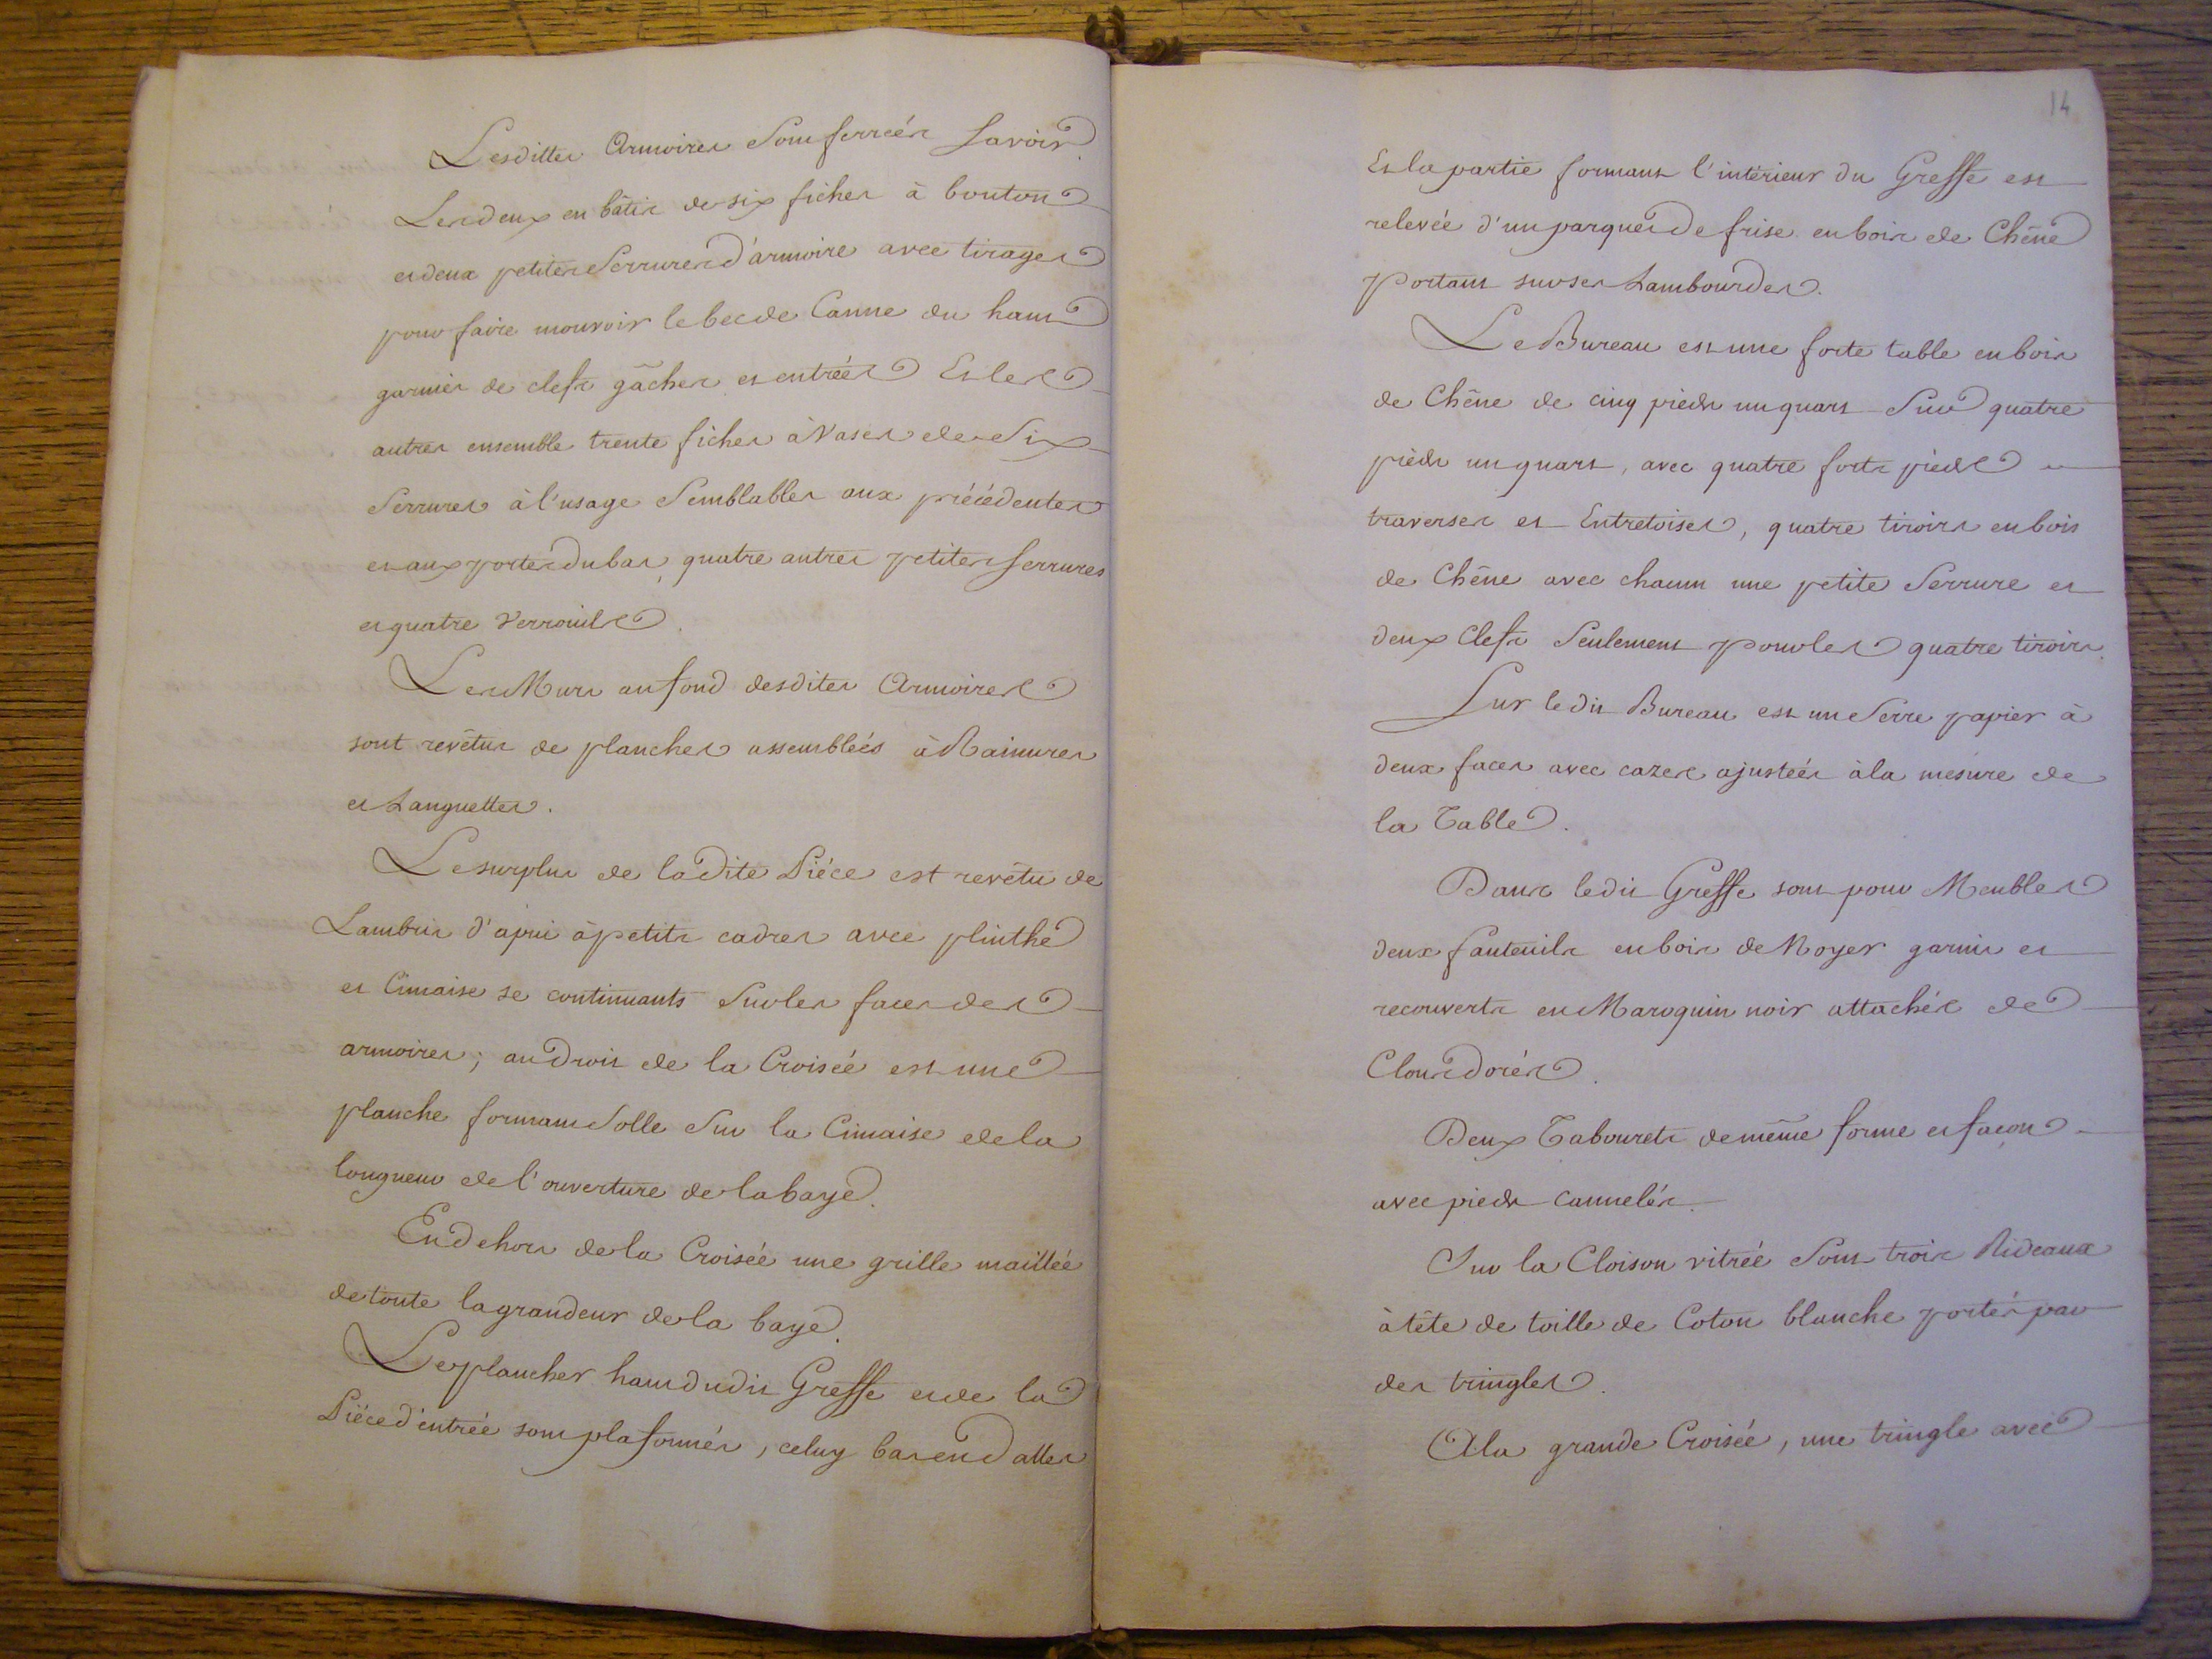 Lesdittes Armoires Sont ferreés Savoir.
Les deux en bâtis de six fiches à bouton
et deux petites Serrures d'armoire avec tirages
pour faire mouvoir le bec de Canne du haut
garnies de clefs gâches et entreés Et les
autres ensemble trente fiches à Vases de Six
Serrures à l'usage Semblables aux précédentes
et aux portes du bas, quatre autres petites serrures
et quatre Verrouils.
Les Murs au fond desdites Armoires
sont revêtus de planches assembleés à Rainures
et Languettes.
Le surplus de la dite Piéce est revêtu de
Lambris d'apui à petits cadres avec plinthe
et Cimaise se continuants Sur les faces des
armoires; au droit de la Croiseé est une
planche formant Solle Sur la Cimaise de la
longueur de l'ouverture de la baye.
En dehors de la Croiseé une grille mailleé
de toute la grandeur de la baye.
Le plancher haut du dit Greffe et de la
Piéce d'entreé sont plafonnés, celuy bas en dalles
14
Et la partie formant l'intérieur du Greffe est
releveé d'un parquet de frise en bois de Chêne
Portant sur ses Lambourdes.
Le Bureau est une forte table en bois
de Chêne de cinq pieds un quart Sur quatre
pieds un quart, avec quatre forts pieds
traverses et Entretoises, quatre tiroirs en bois
de Chêne avec chacun une petite Serrure et
deux Clefs Seulement Pour les quatre tiroirs.
Sur le dit Bureau est un Serre papier à
deux faces avec cazes ajusteés à la mesure de
la Table.
Dans le dit Greffe sont pour Meubles
deux fauteuils en bois de Noyer garnis et
recouverts en Maroquin noir attachés de
Clous dorés.
Deux Tabourets de même forme et façon
avec pieds cannelés.
Sur la Cloison vitreé Sont trois Rideaux
à tête de toille de Coton blanche portés par
des tringles.
A la grande Croiseé, une tringle avec